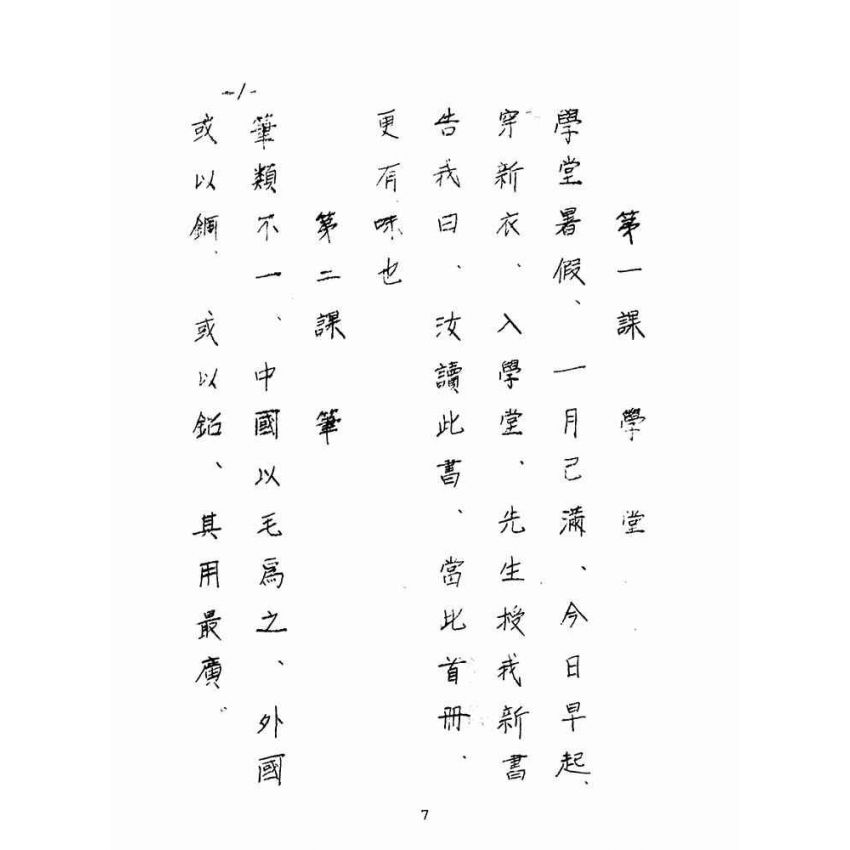 第一課 學堂
學堂暑假、一月已滿、今日早起、
穿新衣、入學堂、先生授我新書
告我曰、汝讀此書、當比首冊、
更有味也
第二課 筆
筆類不一、中國以毛為之、外國
或以鋼、或以鉛、其用最廣。
-1-
7